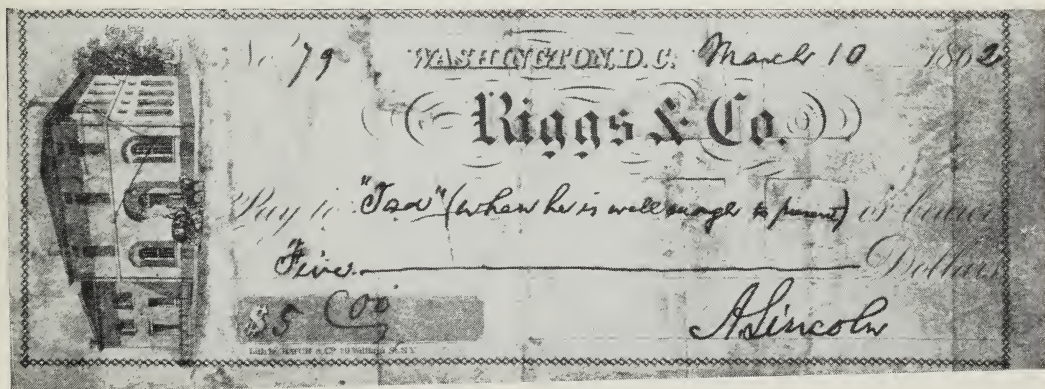 No. 79 WASHINGTON, D.C. March 10 1862
Riggs & Co.
Pay to "Tad" (when he is well enough to present) or bearer
Five Dollars
$5 00
A. Lincoln
Lith. by HATCH & Co 29 William St. N.Y.